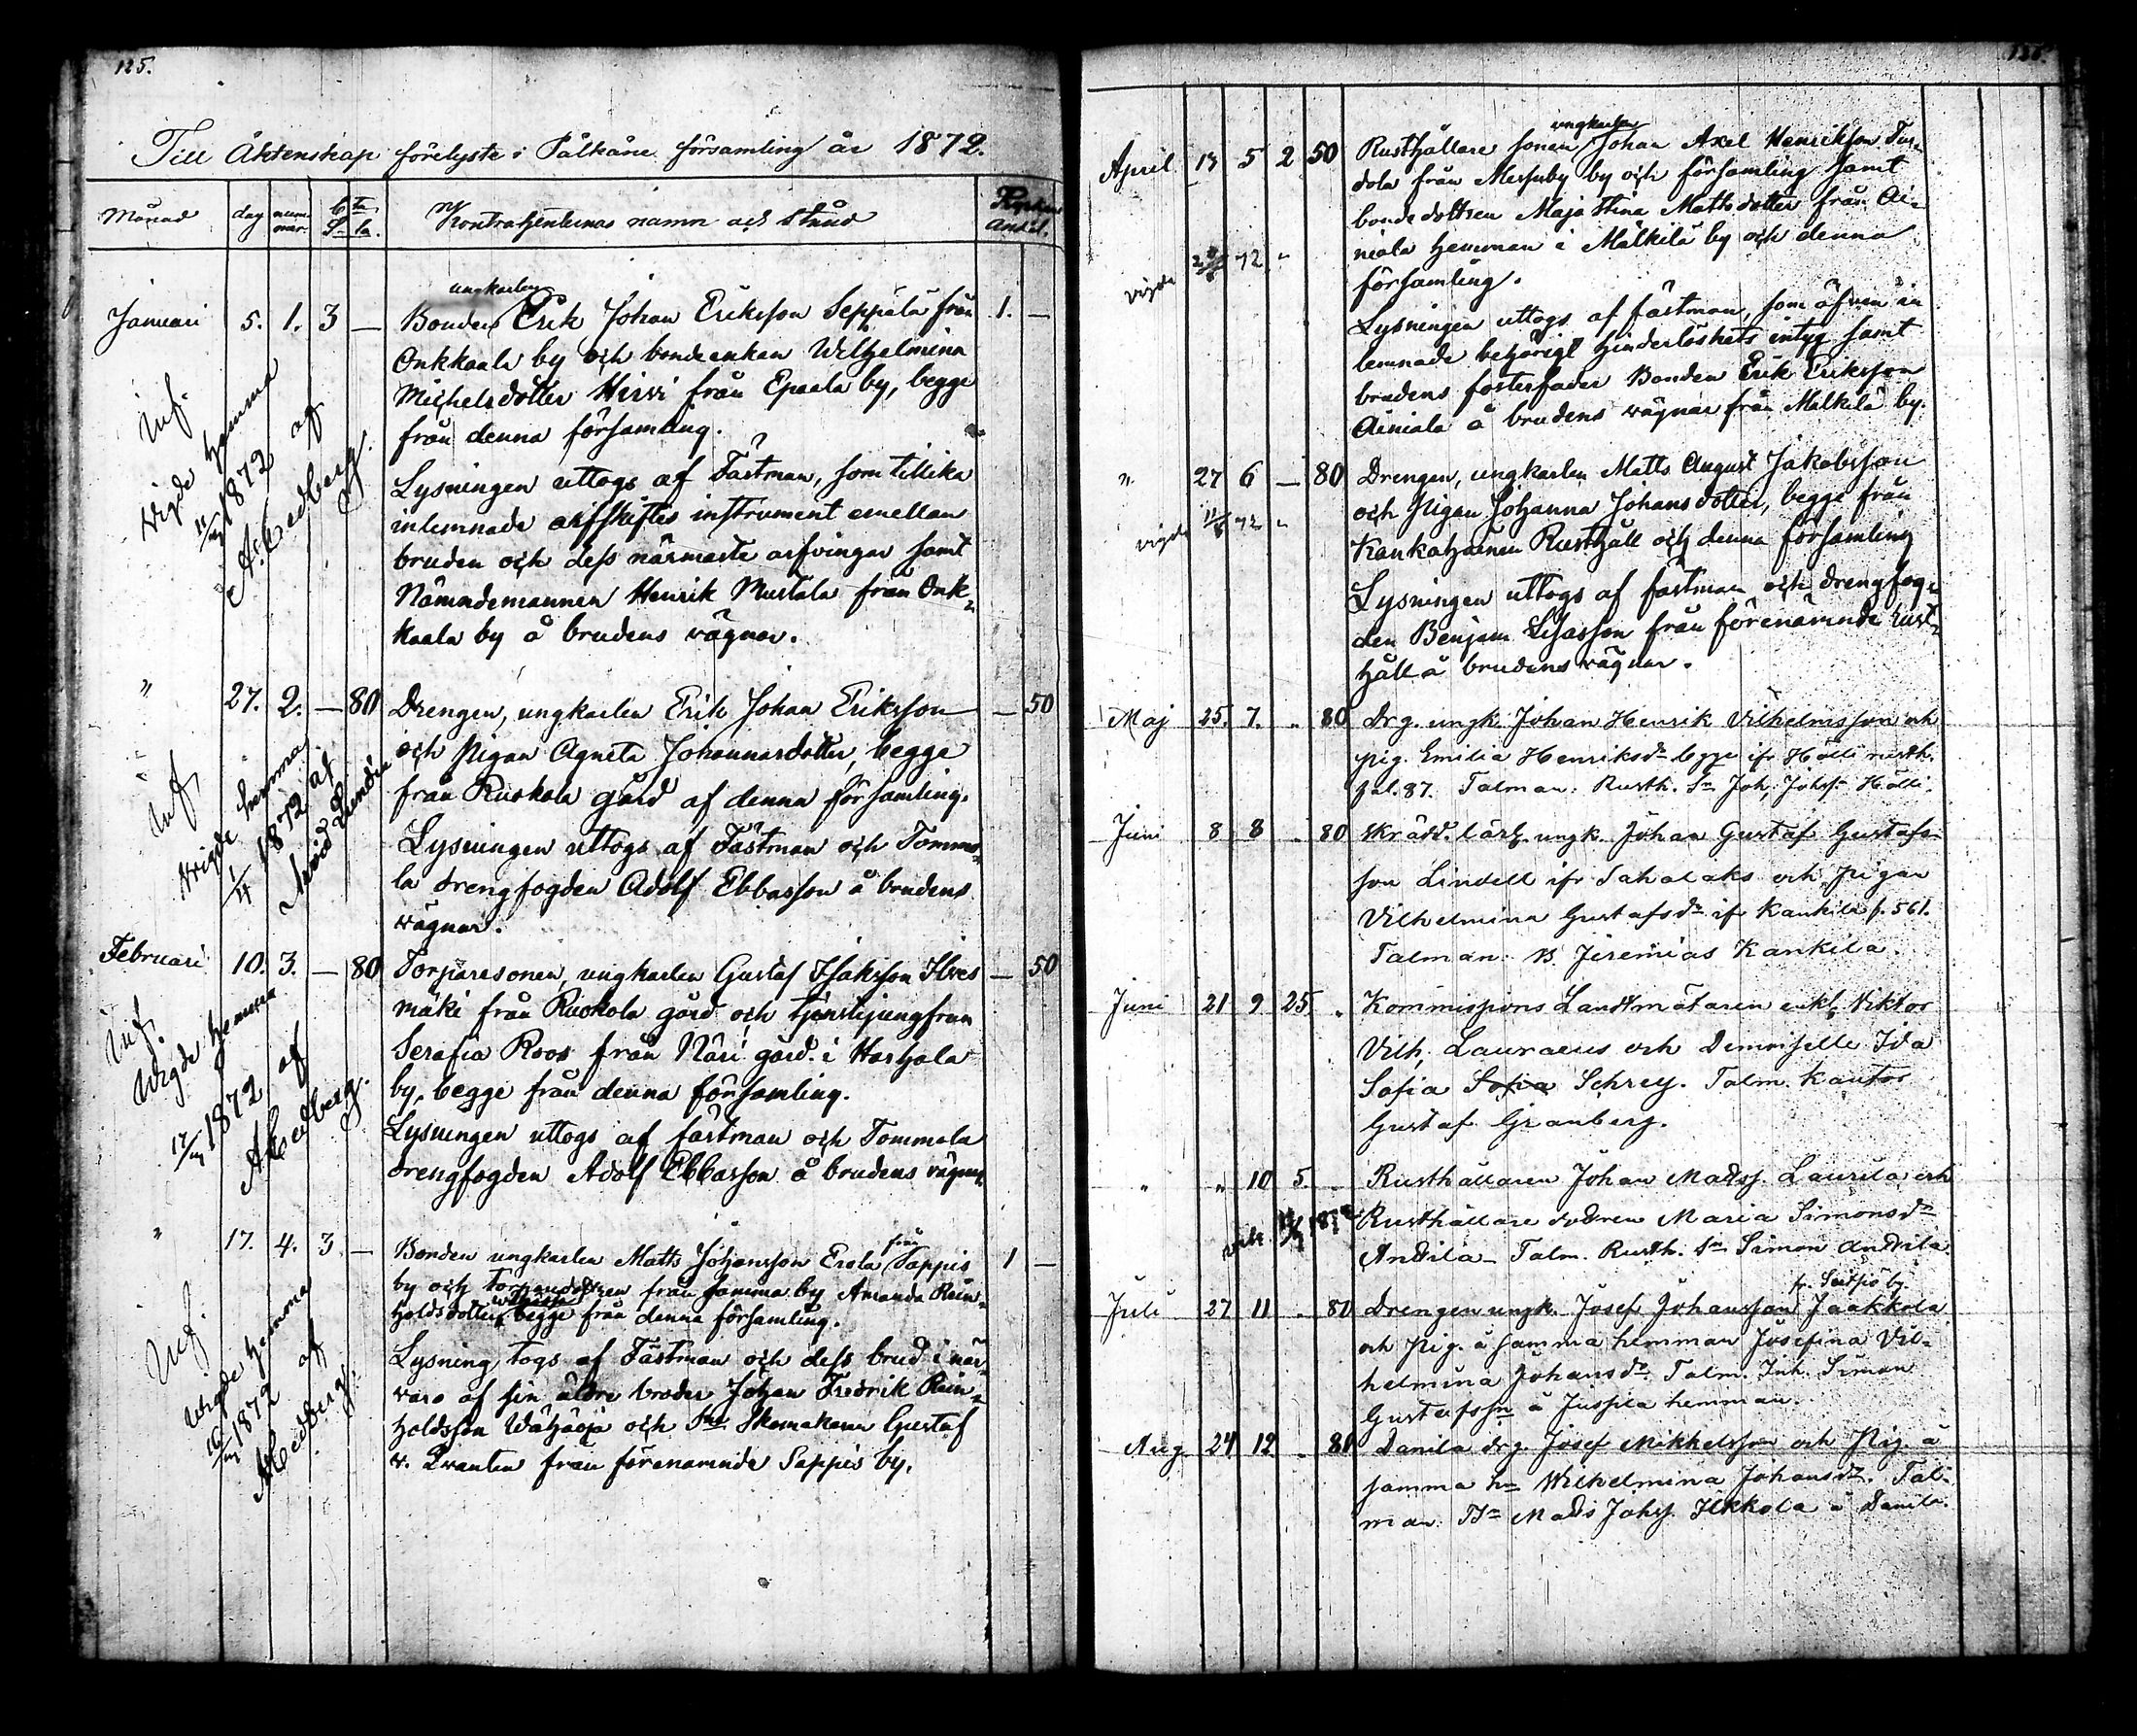 125.
Till Äktenskap förelyste i Pälkäne församling år 1872.
Månad dag num-mer Kontrahenternas namn och stånd Kyrkan andel.
Januari 5. 1. 3 — ungkarlen
Bonden Erik Johan Eriksson Seppälä från 1. —
Onkkaala by och bondeenkan Wilhelmina
Michelsdotter Hirvi från Epaala by, begge
från denna församling.
Lysningen uttogs af Fästman, som tillika
inlemnade arfskiftes instrument emellan
bruden och dess närmaste arfvingar samt
Nämndemannen Henrik Mustala från Onk-
kaala by å brudens vägnar.
Wigde hemma
11/2 1872 af
A. Cedberg.
" 27. 2. — 80 Drengen, ungkarlen Erik Johan Eriksson — 50
och Pigan Agneta Johannesdotter, begge
från Ruokola gård af denna församling.
Lysningen uttogs af Fästman och Tommo-
la drengfogden Adolf Ebbasson å brudens
vägnar.
Wigde hemma
1/4 1872 af
Arvid Lundén
Februari 10. 3. — 80 Torparesonen, ungkarlen Gustaf Isaksson Ilves — 50
mäki från Ruokola gård och tjenstejungfrun
Serafia Roos från Näri gård i Harhala
by, begge från denna församling.
Lysningen uttogs af fästman och Tommola
drengfogden Adolf Ebbasson å brudens vägnar
Wigde hemma
1872 af
A Cedberg.
" 17. 4. 3. — Bonden ungkarlen Matts Johansson Erola från Sappis 1 —
by och torparedottren från samma by Amanda Rein-
holdsdotter begge från denna församling.
Lysning togs af Fästman och dess brud i när-
varo af sin äldre broder Johan Fredrik Rein-
holdsson Wähäoja och Skomakaren Gustaf
v. Qvanten från förenämnde Sappis by.
Wigde hemma
1872 af
A Cedberg.
126.
April 13 5 2 50 Rusthållare sonen ungkarlen Johan Axel Henriksson Tur-
dola från Messuby by och församling samt
bonde dottren Maja Stina Mattsdotter från Ai-
niala hemman i Mälkilä by och denna
församling.
vigde 72.
Lysningen uttogs af fästman, som äfven in
lemnade behörigt hinderlöshets intyg samt
brudens fosterfader Bonden Erik Eriksson
Ainiala å brudens vägnar från Mälkilä by.
" 27 6 — 80 Drengen, ungkarlen Matts August Jakobsson
och Pigan Johanna Johansdotter, begge från
Kankahainen Rusthåll och denna församling
vigde 72 "
Lysningen uttogs af fästman och drengfog-
den Benjam från förenämnde Rust-
håll å brudens vägnar.
Maj 25. 7. . 80 Drg. ungk. Johan Henrik Vilhelmsson och
pig. Emilia Henriksdr begge ifr Hölli rusth.
pal. 87. Talman: Rusth. Sn Joh, Johss. Hölli.
Juni 8 8 . 80 Skrädd. lärl. ungk. Johan Gustaf Gustafs-
son Lindell ifr Sahalaks och Pigan
Vilhelmina Gustafsdr ifr Kankila p. 561.
Talman B. Jeremias Kankila.
Juni 21 9 25 . Kommissions Landtmätaren enkl. Viktor
Vilh. Lauraeus och Demoiselle Ida
Sofia Sofia Schrey. Talm. Kantor
Gustaf Granberg.
" " 10 5. . Rusthållaren Johan Matss. Laurila och
Rusthållare dottren Maria Simonsdr
Anttila. Talm. Rusth. Sn Simon Anttila.
Juli 27 11 . 80 Drengen ungk. Josef Johansson Jaakkola
och pig. å samma hemman Josefina Vil-
helmina Johansdr Talm. Inh. Simon
Gustafssn å Jussila hemman.
Aug 24 12 . 80 Danila drg. Josef Mikkelsson och Pig. å
samma hn Wilhelmina Johansdr. Tal-
man. Bn Matts Johss. Ilkkola å Danila.